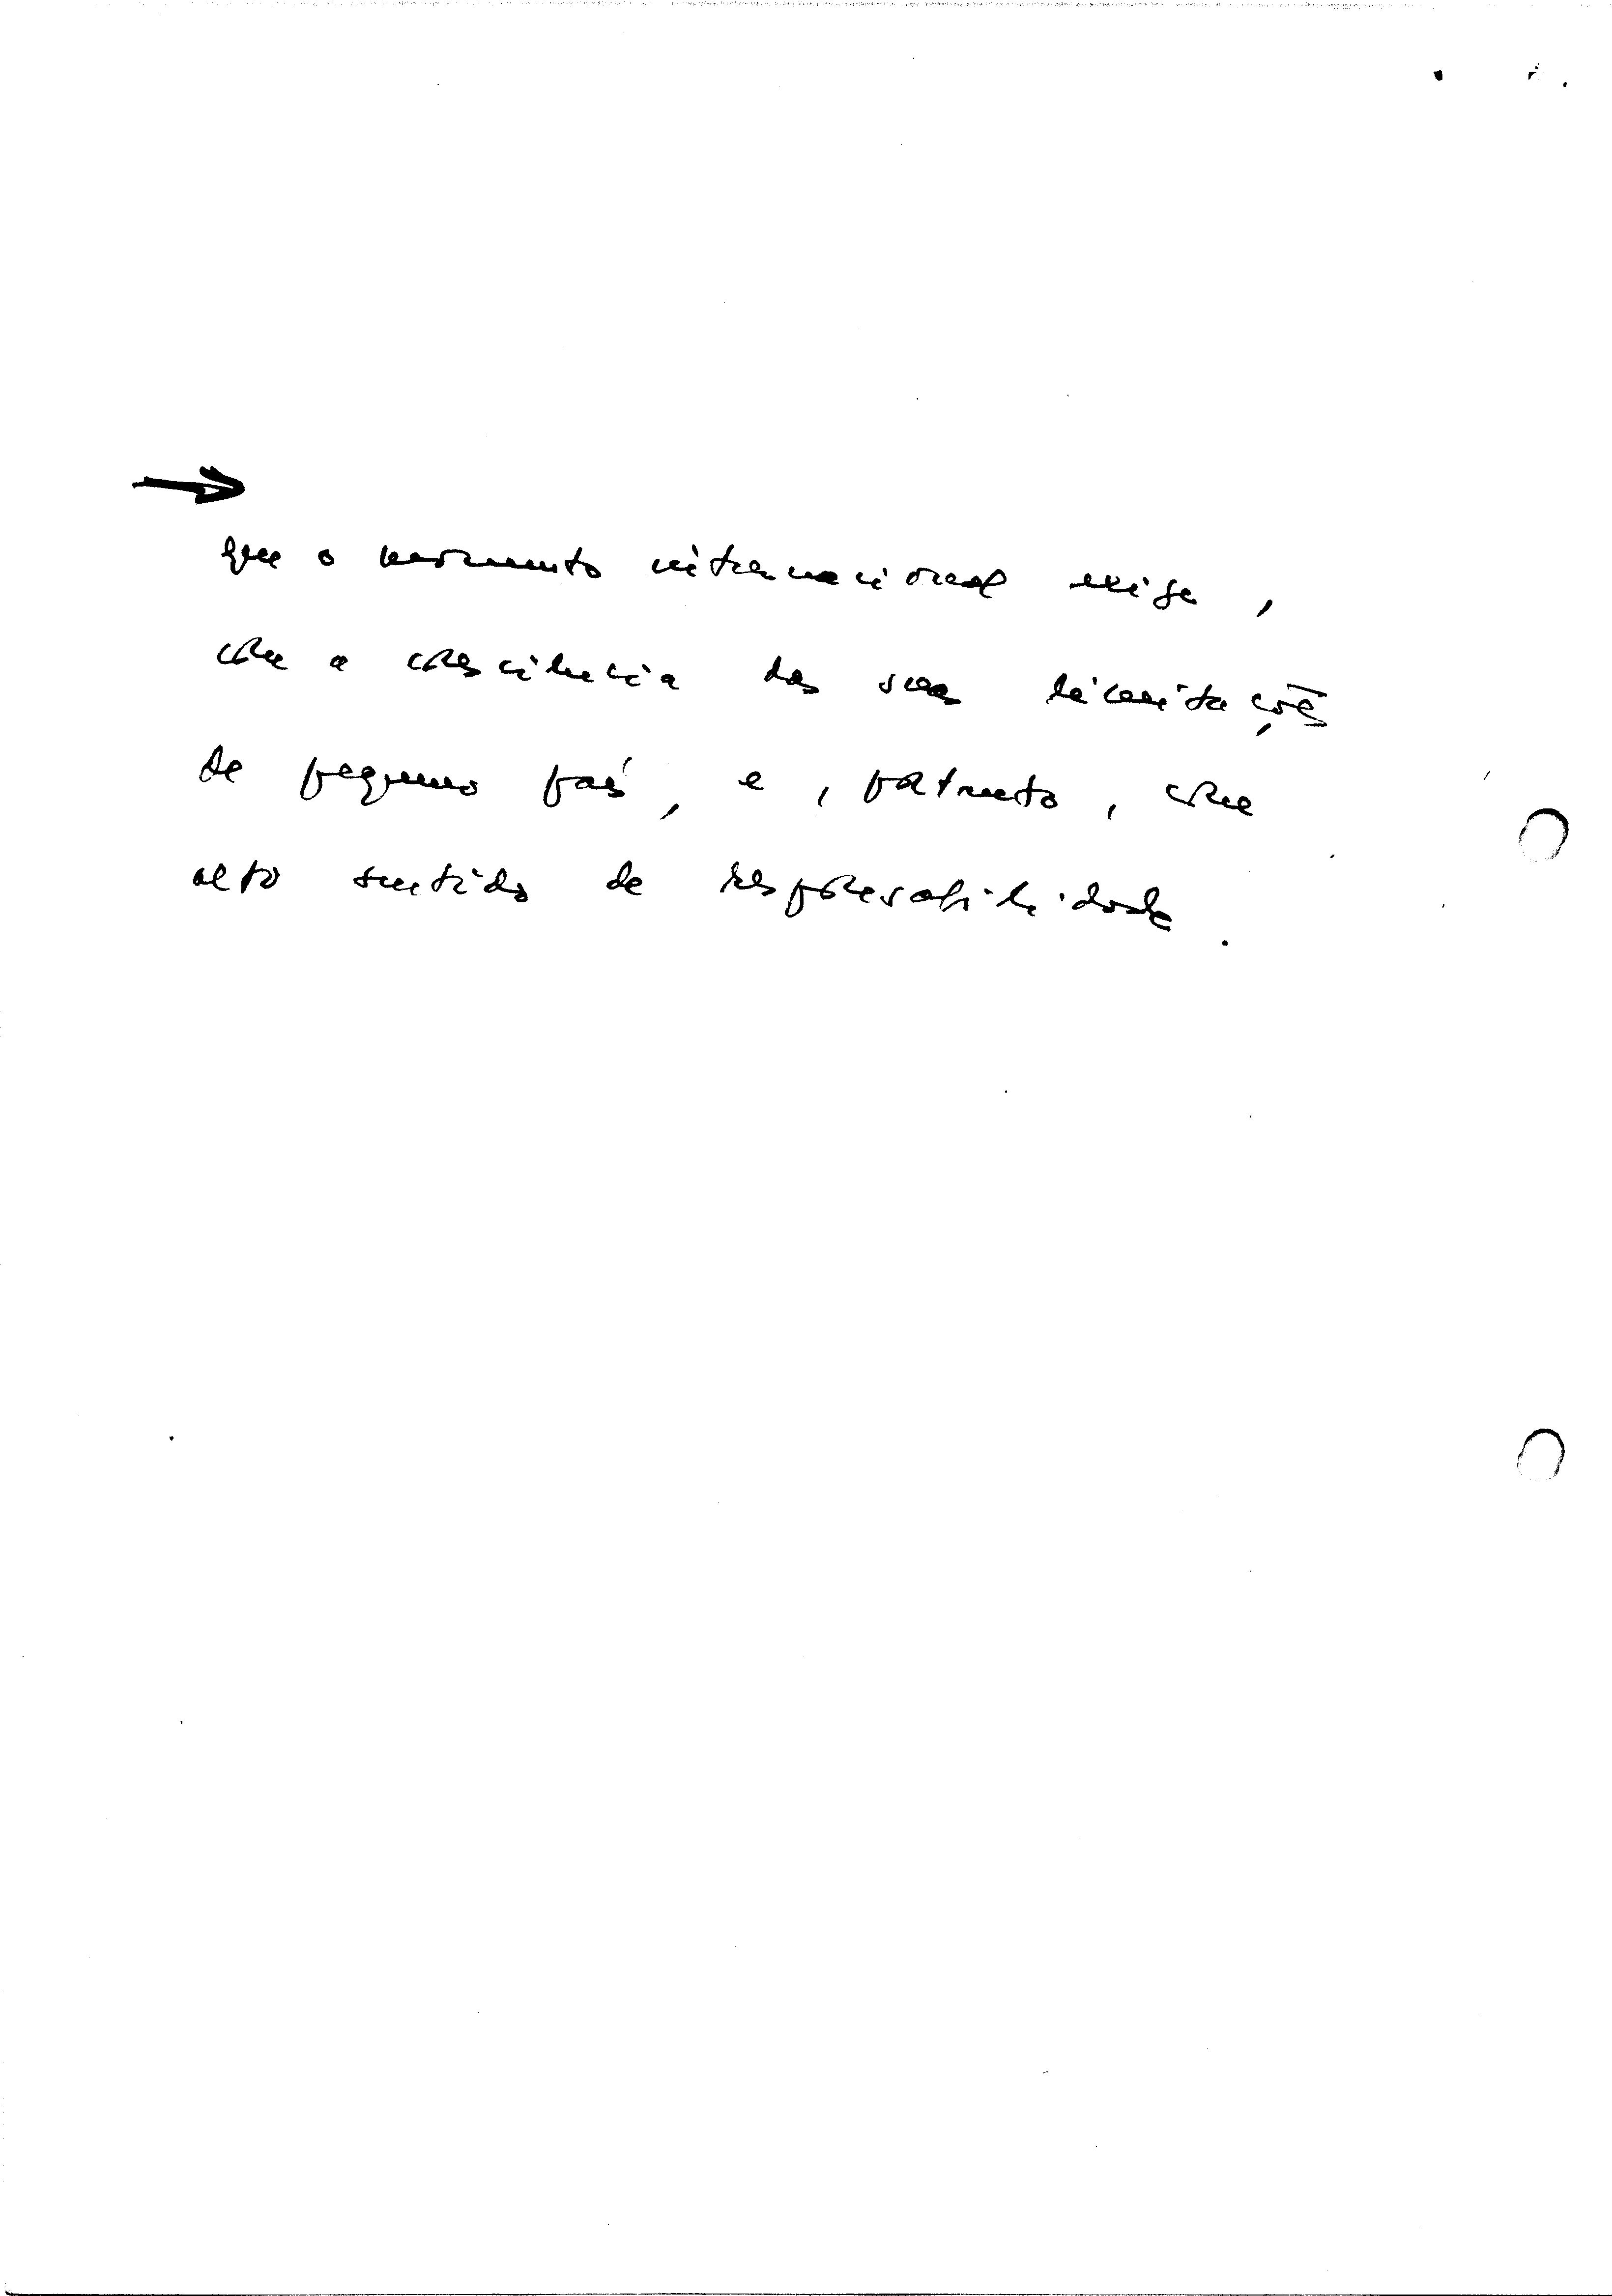 →
que o momento internacional exige,
com a consciência das suas limitações
de pequeno país, e, portanto, com
alto sentido de responsabilidade.